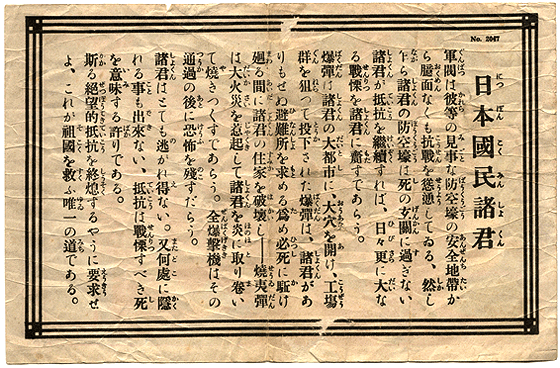 No. 2047
日本國民諸君
軍閥は彼等の見事な防空壕の安全地帶か
ら臆面なくも抗戰を慫慂してゐる、然し
乍ら諸君の防空壕は死の玄關に過ぎない
諸君が抵抗を繼續すれば、日々更に大な
る戰慄を諸君に齎すであらう。
爆彈は諸君の大都市に、大穴を開け、工場
群を狙つて投下された爆彈は、諸君があ
りもせぬ避難所を求める爲め必死に駈け
廻る間に諸君の住家を破壞し——燒夷彈
は大火災を惹起して諸君を炎で取り卷い
て燒きつくすであらう。全爆擊機はその
通過の後に恐怖を殘すだらう。
諸君はとても逃が れ得ない。又何處に隱
れる事も出來ない、抵抗は戰慄すべき死
を意味する許りである。
斯る絕望的抵抗を終熄するやうに要求せ
よ、これが祖國を救ふ唯一の道である。